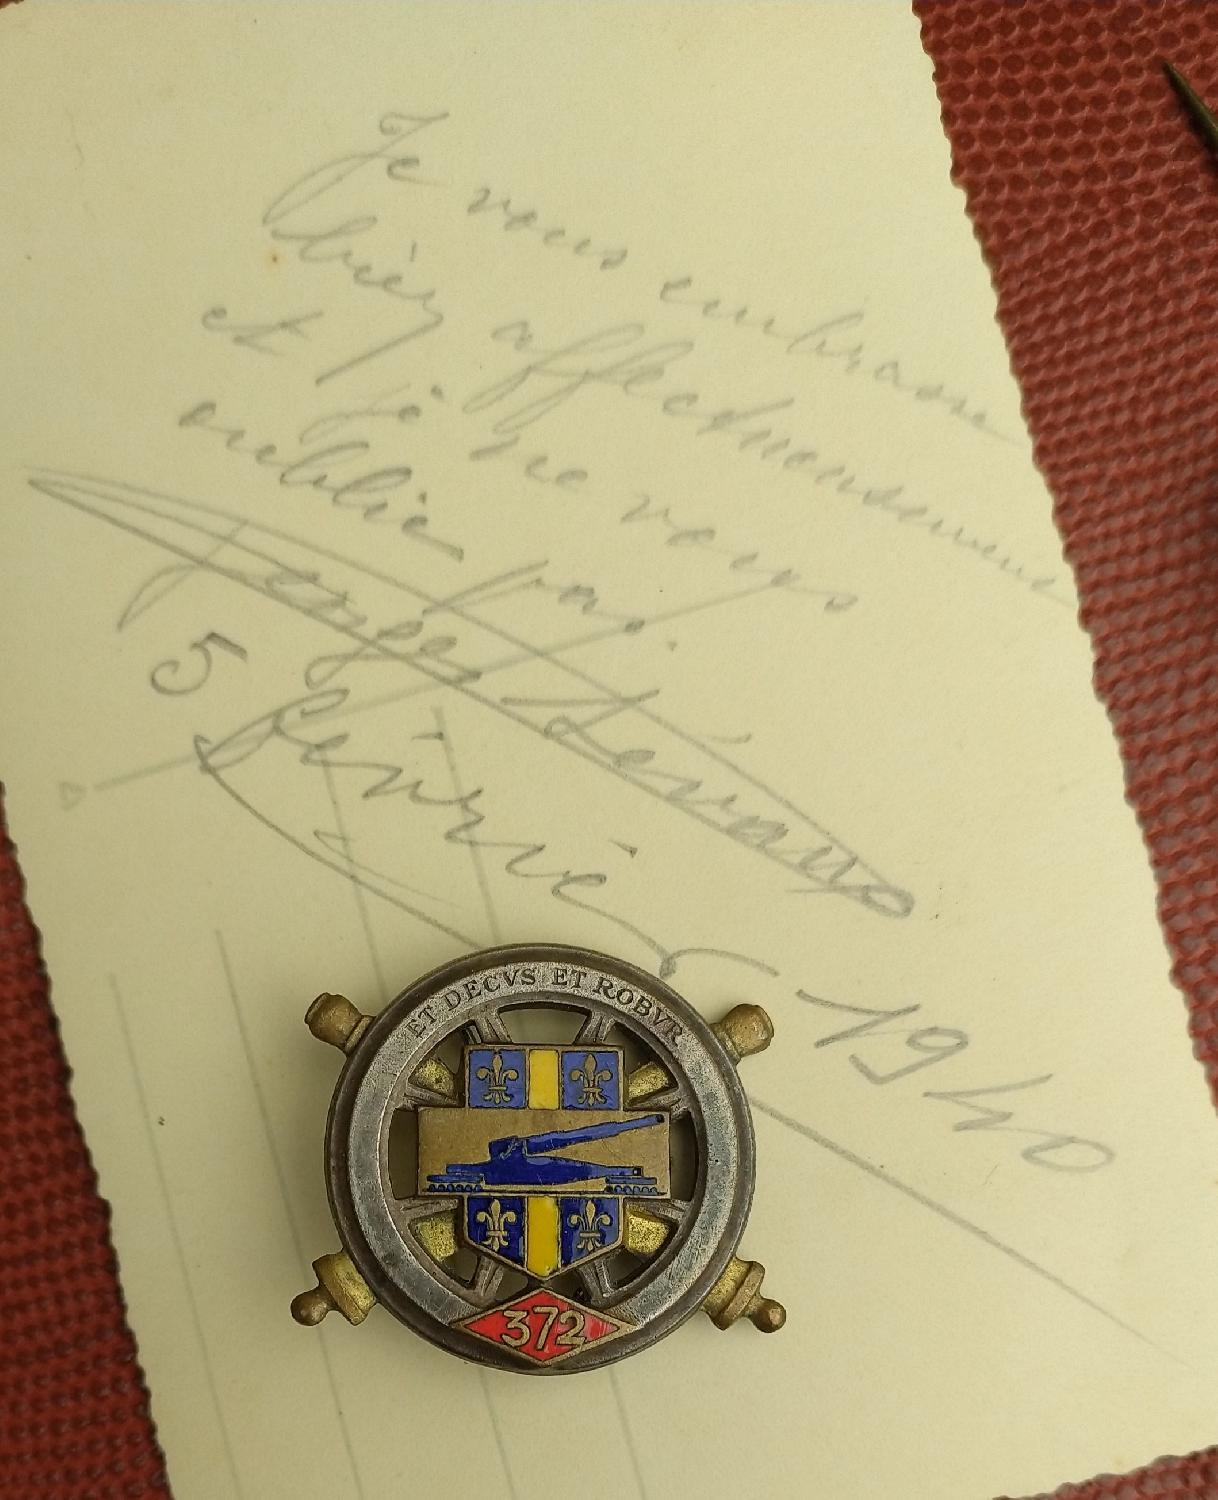 Je vous embrasse
bien affectueusement
et je ne vous
oublie pas.
5 Février 1940
ET DECVS ET ROBVR
372